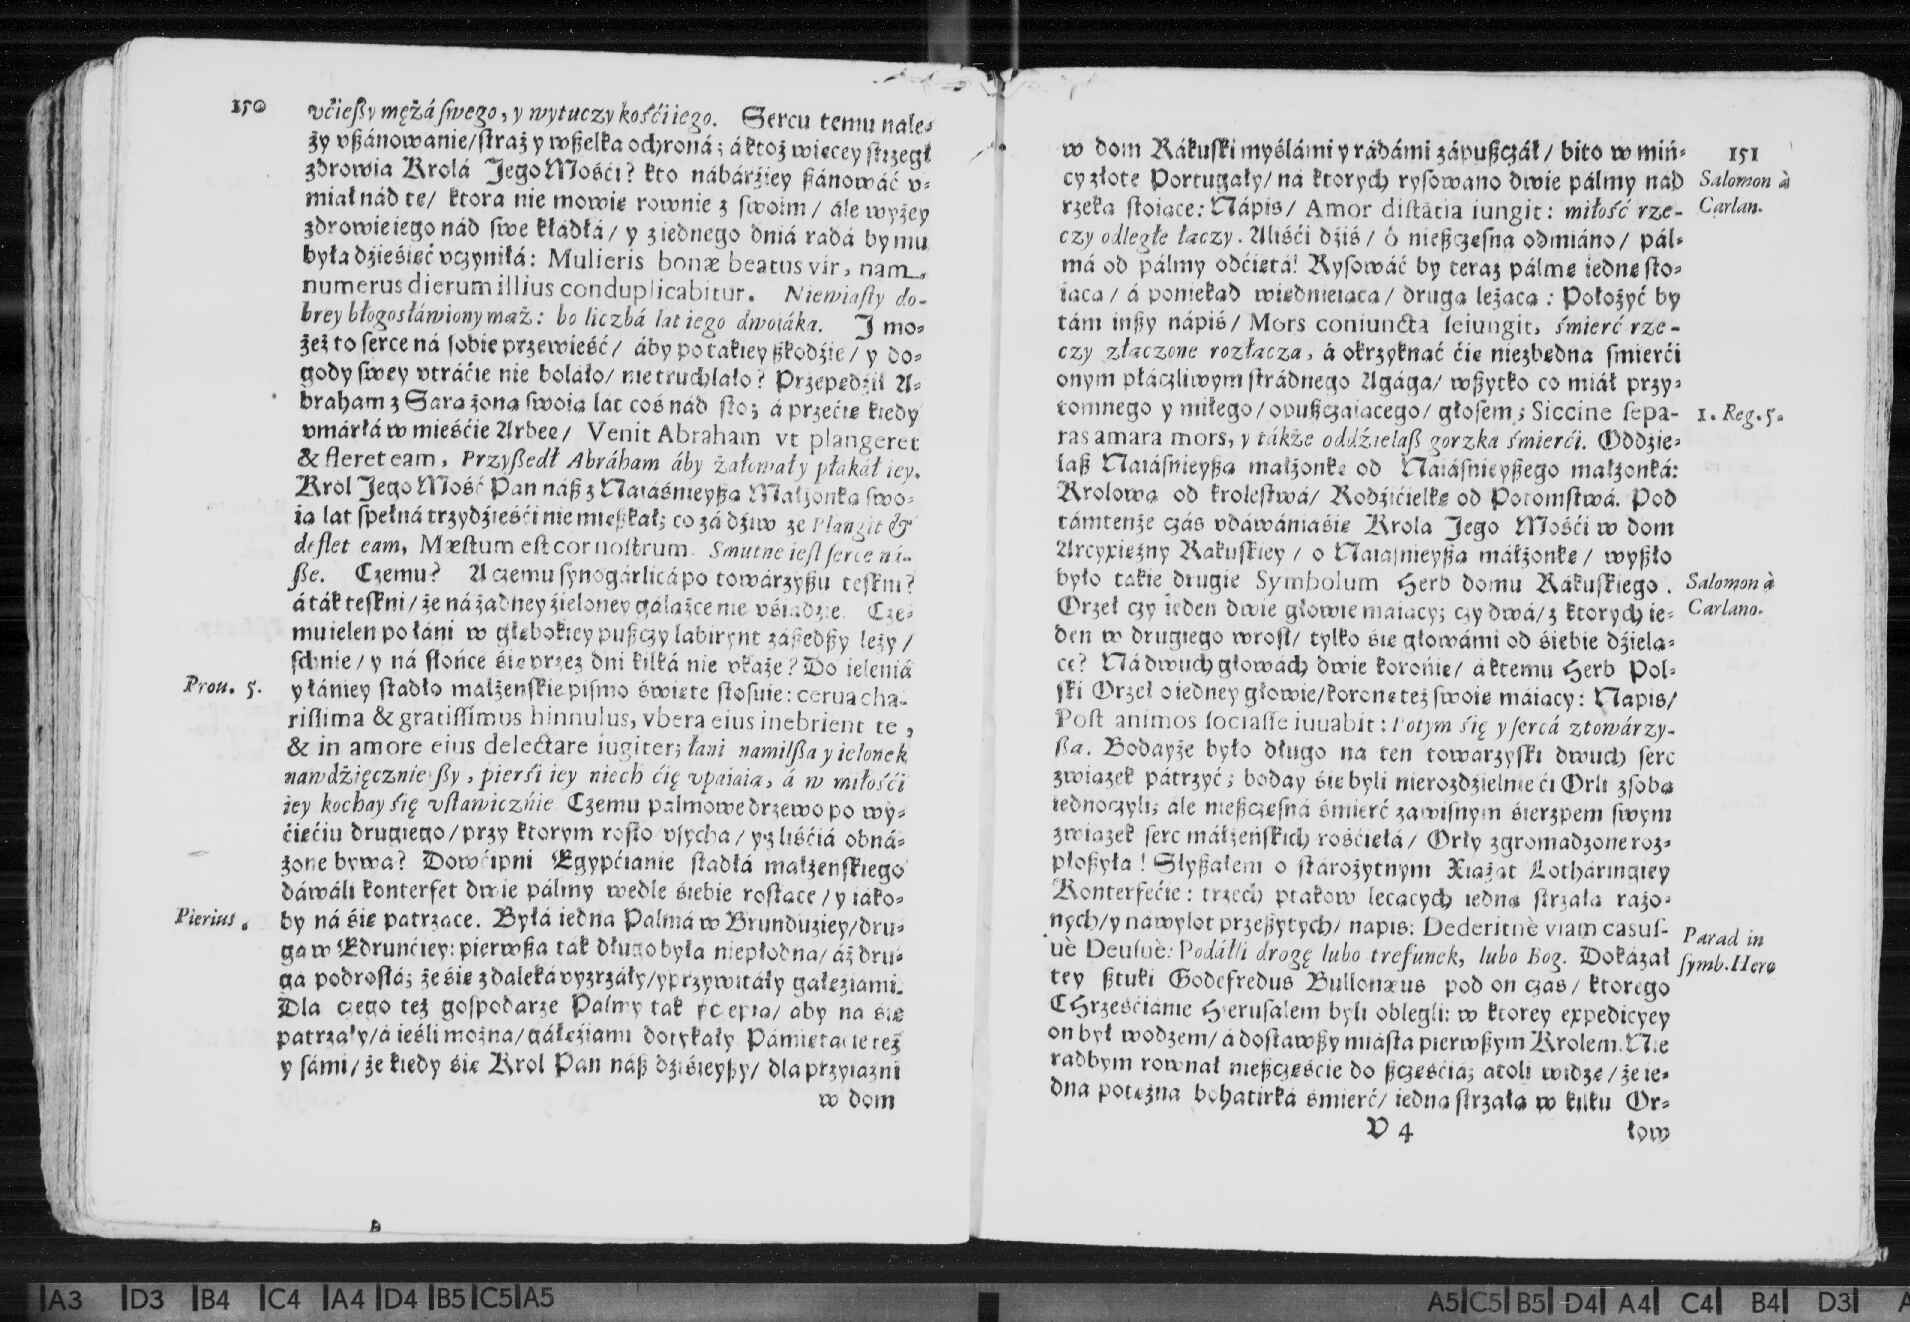 150
vćießy mężá swego, y wytuczy kośći iego. Sercu temu nale-
ży vßánowanie/ straż y wßelka ochroná; á ktoż więcey strzegł
zdrowia Krolá Jego Mośći? kto nábárźiey ßánowáć v-
miał nád tę/ ktora nie mowię rownie z swoim/ ále wyżey
zdrowie iego nád swe kłádłá/ y z iednego dniá rádá by mu
byłá dźieśięć vczyniłá: Mulieris bonæ beatus vir, nam
numerus dierum illius conduplicabitur. Niewiásty do-
brey błogosłáwiony mąż: bo liczbá lat iego dwoiáka. J mo-
żeż to serce ná sobie przewieść/ áby po tákiey ßkodźie/ y do-
gody swey vtráćie nie boláło/ nie truchlało? Przepędźił A-
braham z Sarą żoną swoią lat coś nád sto; á przećię kiedy
vmárłá w mieśćie Arbee/ Venit Abraham vt plangeret
& fleret eam, Przyßedł Abráham áby żałowały płakáł iey.
Krol Jego Mość Pan náß z Naiaśnieyßą Małżonką swo-
ią lat spełná trzydźieśći nie mießkał; co zá dźiw że Plangit &
deflet eam, Mæstum est cor nostrum. Smutne iest serce ná-
ße. Czemu? A czemu synogárlicá po towárzyßu teskni?
á ták teskni/ że ná żadney źieloney gáłążce nie vśiądźie. Cze-
mu ielen po łáni w głębokiey pußczy labirynt záßedßy leży/
schnie/ y ná słońce się przez dni kilká nie vkaże? Do ieleniá
Prou. 5. y łániey stadło małżenskie pismo święte stosuie: cerua cha-
rissima & gratissimus hinnulus, vbera eius inebrient te,
& in amore eius delectare iugiter; łani namilßa y ielonek
nawdźięcznieyßy, pierśi iey niech ćię vpaiaią, á w miłośći
iey kochay śię vstáwicznie. Czemu palmowe drzewo po wy-
ćięćiu drugiego/ przy ktorym rosło vsycha/ y z liśćiá obná-
żone bywa? Dowćipni Egypćianie stadłá małżenskiego
dáwáli konterfet dwie pálmy wedle śiebie rostące/ y iáko-
Pierius. by ná śię patrzące. Byłá iedna Palmá w Brunduziey/ dru-
ga w Edrunćiey: pierwßa ták długo była niepłodna/ áż dru-
ga podrosłá; że się z daleká vyzrzáły/ y przywitáły gałęźiami.
Dla czego też gospodarze Palmy tak ßczepią/ aby na śię
patrzały/ á ieśli można/ gáłęźiami dotykały. Pámiętacie też
y sámi/ że kiedy śię Krol Pan náß dźiśieyßy/ dla przyiaźni
w dom
151
w dom Rákuski myślámi y rádámi zápußczáł/ bito w miń-
cy złote Portugały/ ná ktorych rysowano dwie pálmy nád
Salomon à
Carlan.
rzeką stoiące: Nápis/ Amor distãtia iungit: miłość rze-
czy odległe łączy. Aliśći dźiś/ ô nießczęsna odmiáno/ pál-
má od pálmy odćięta! Rysowáć by teraz pálmę iednę sto-
iącą/ á poniekąd więdnieiącą/ drugą leżącą: Położyć by
tám inßy nápis/ Mors coniuncta seiungit, śmierć rze-
czy złączone rozłącza, á okrzyknąć ćię niezbędna śmierći
onym płáczliwym strádnego Agága/ wßytko co miáł przy-
tomnego y miłego/ opußczaiącego/ głosem; Siccine sepa-
1. Reg. 5.
ras amara mors, y tákże oddźielaß gorzka śmierći. Oddzie-
laß Naiáśnieyßą małżonkę od Naiáśnieyßego małżonká:
Krolową od krolestwá/ Rodźićielkę od Potomstwá. Pod
támtenże czás vdáwániá się Krola Jego Mośći w dom
Arcyxiężny Rakuskiey/ o Naiaśnieyßą máłżonkę/ wyßło
było takie drugie Symbolum Herb domu Rákuskiego.
Salomon à
Carlano.
Orzeł czy ieden dwie głowie maiący; czy dwá/ z ktorych ie-
den w drugiego wrost/ tylko się głowámi od śiebie dźielą-
ce? Ná dwuch głowách dwie koronie/ á k temu Herb Pol-
ski Orzeł o iedney głowie/ koronę też swoię máiący: Napis/
Post animos sociasse iuuabit: Potym śię y sercá ztowárzy-
ßą. Bodayże było długo na ten towarzyski dwuch serc
związek pátrzyć; boday śię byli nierozdźielnie ći Orli z sobą
iednoczyli; ale nießczęsná śmierć zawisnym śierzpem swym
związek serc máłżeńskich rośćięłá/ Orły zgromadzone roz-
płoßyła! Słyßałem o stárożytnym Xiążąt Lotháringiey
Konterfećie: trzech ptakow lecących iedną strzałą rażo-
nych/ y náwylot przeßytych/ napis: Dederitnè viam casus-
Parad in
symb. Hero
uè Deusuè: Podáłli drogę lubo trefunek, lubo Bog. Dokázał
tey ßtuki Godefredus Bullonæus pod on czas/ ktorego
CHrześćiánie Hierusalem byli oblegli: w ktorey expedicyey
on był wodzem/ á dostawßy miásta pierwßym Krolem. Nie
radbym rownał nießczęśćie do ßczęśćiá; atoli widzę/ że ie-
dna potężna bohatirká śmierć/ iedną strzałą w kilku Or-
V 4
łow